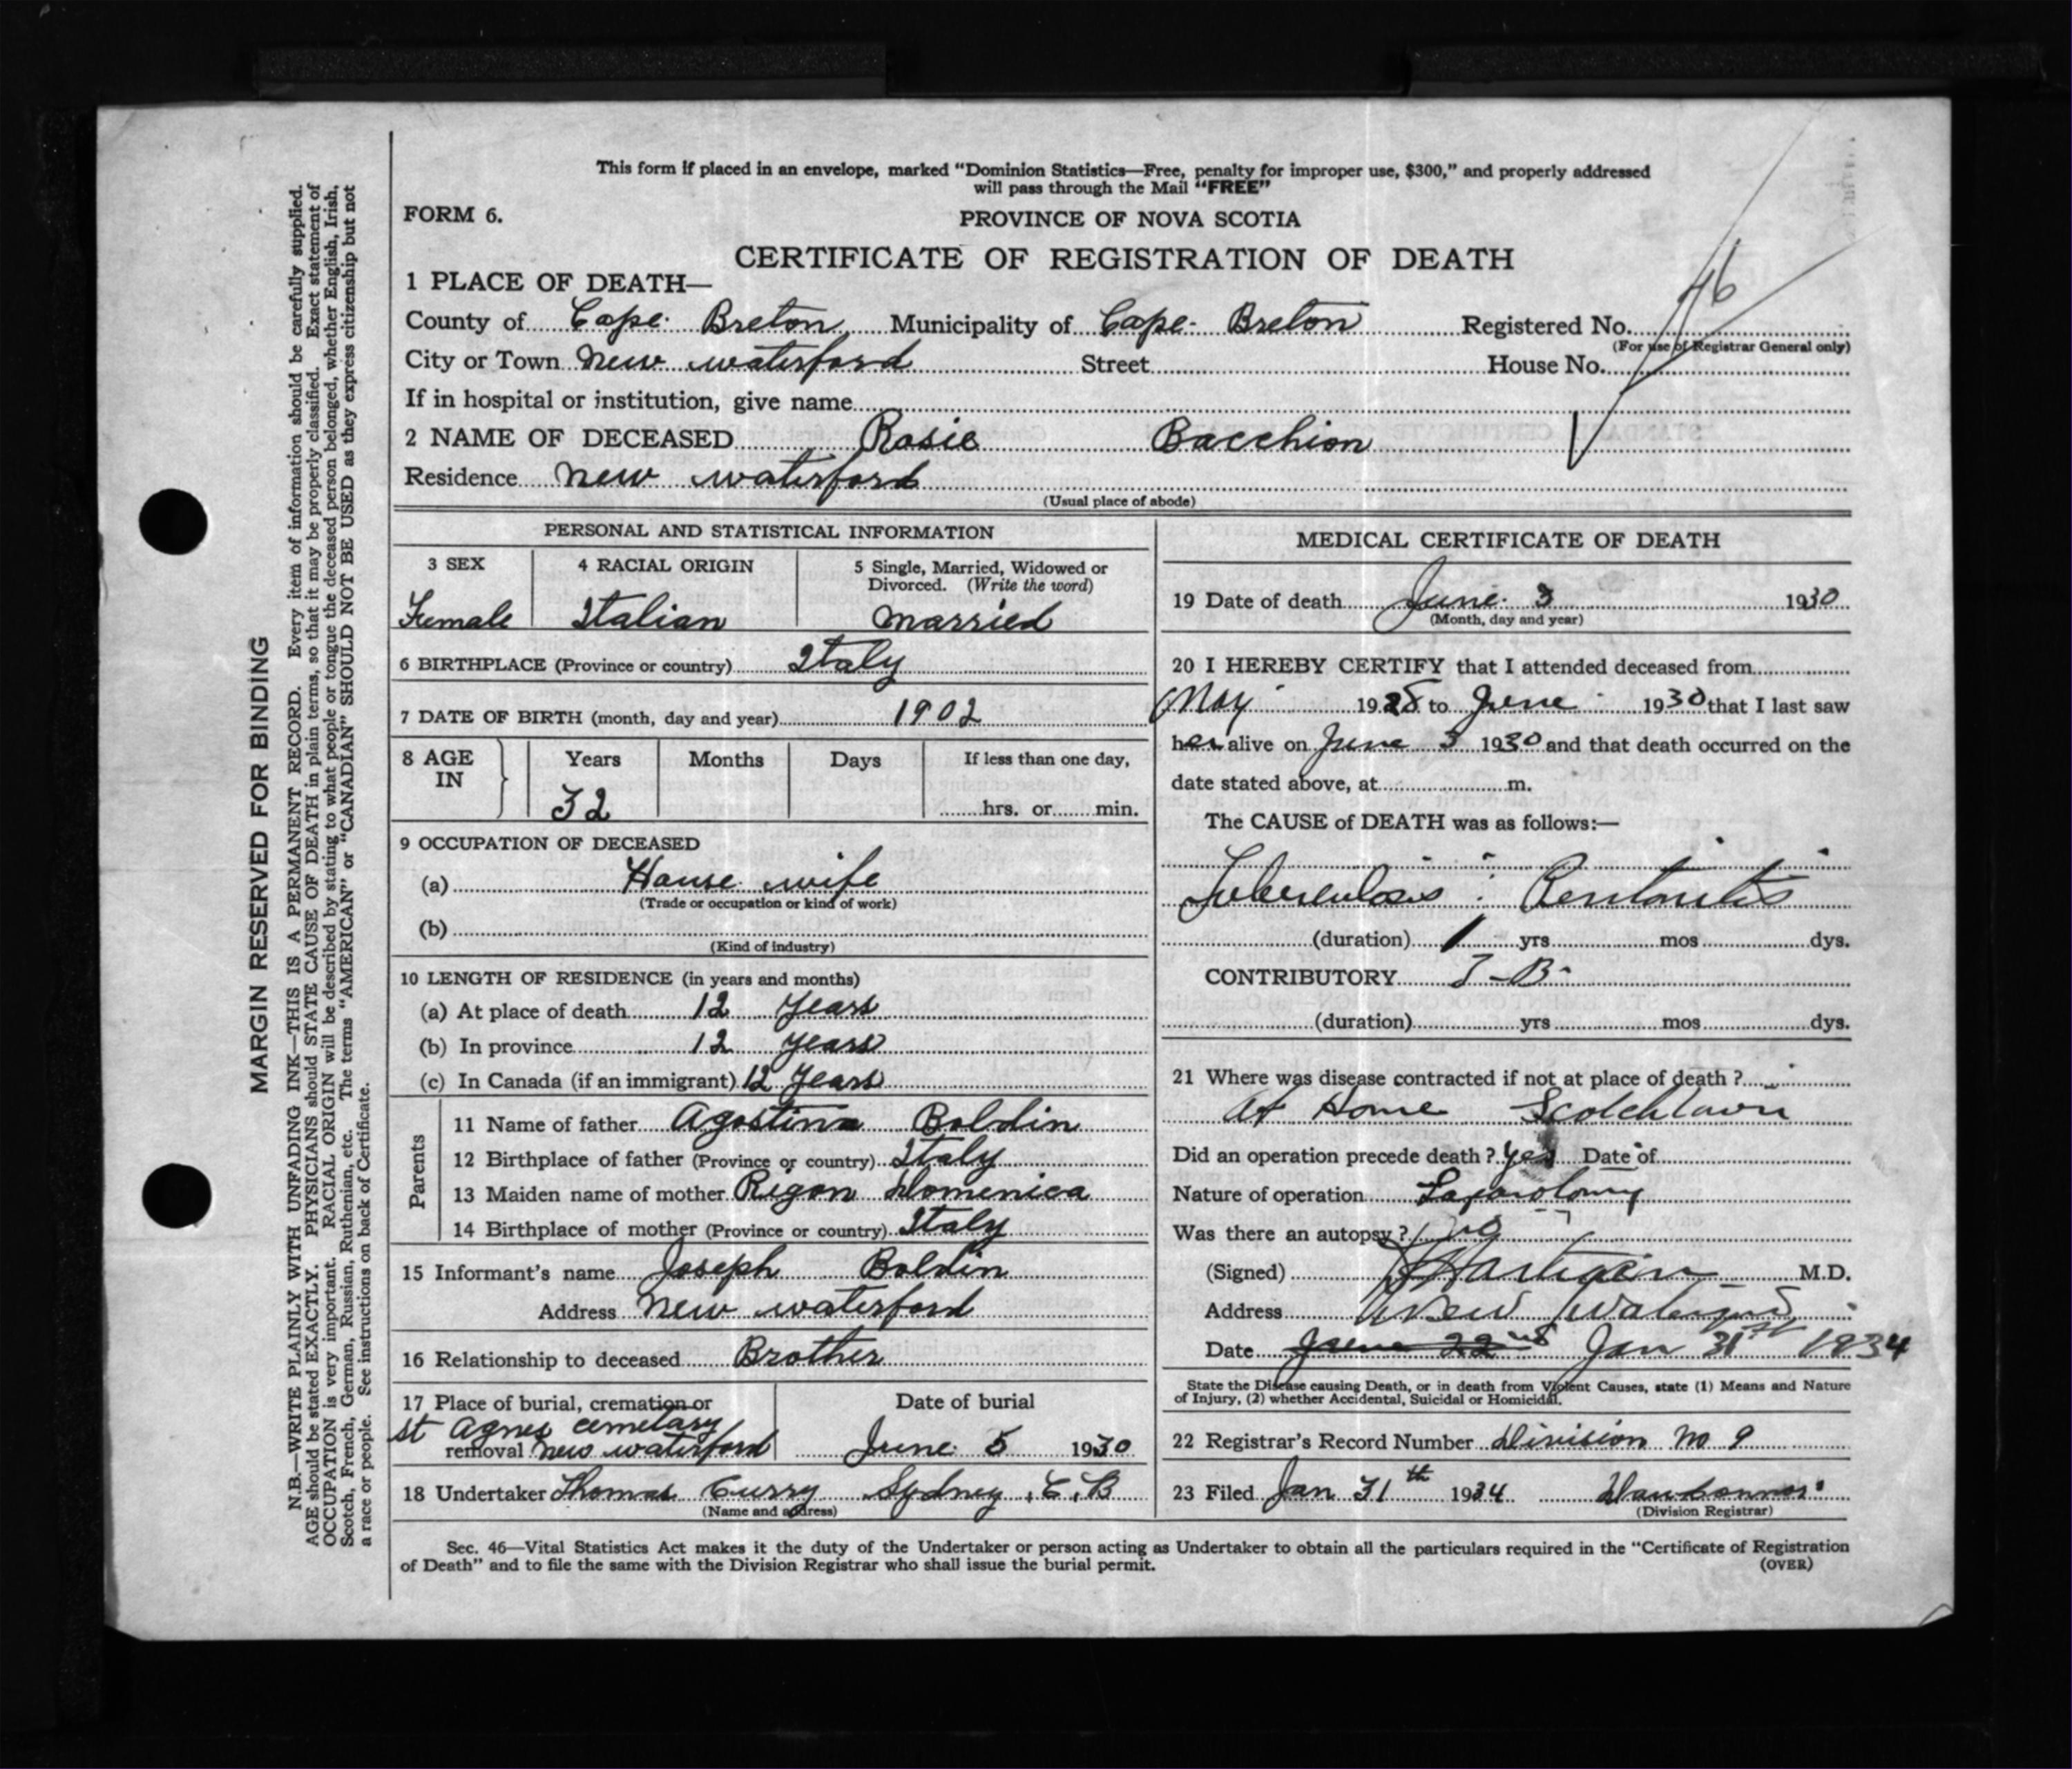 This form if placed in an envelope, marked “Dominion Statistics—Free, penalty for improper use, $300,” and properly addressed
will pass through the Mail “FREE”
FORM 6.
PROVINCE OF NOVA SCOTIA
CERTIFICATE OF REGISTRATION OF DEATH
46
1 PLACE OF DEATH—
County of Cape Breton Municipality of Cape Breton Registered No.
(For use of Registrar General only)
City or Town New Waterford Street House No.
If in hospital or institution, give name
2 NAME OF DECEASED Rosie Bacchion
Residence New Waterford
(Usual place of abode)
PERSONAL AND STATISTICAL INFORMATION
3 SEX 4 RACIAL ORIGIN 5 Single, Married, Widowed or
Divorced. (Write the word)
Female Italian Married
6 BIRTHPLACE (Province or country) Italy
7 DATE OF BIRTH (month, day and year) 1902
8 AGE IN Years Months Days If less than one day,
32 hrs. or min.
9 OCCUPATION OF DECEASED
(a) House wife
(Trade or occupation or kind of work)
(b)
(Kind of industry)
10 LENGTH OF RESIDENCE (in years and months)
(a) At place of death 12 years
(b) In province 12 years
(c) In Canada (if an immigrant) 12 years
Parents
11 Name of father Agostino Boldin
12 Birthplace of father (Province or country) Italy
13 Maiden name of mother Rigon Domenica
14 Birthplace of mother (Province or country) Italy
15 Informant's name Joseph Boldin
Address New Waterford
16 Relationship to deceased Brother
17 Place of burial, cremation or Date of burial
St Agnes cemetary
removal New Waterford June 5 1930
18 Undertaker Thomas Curry Sydney, C.B
(Name and address)
MEDICAL CERTIFICATE OF DEATH
19 Date of death June 3 1930
(Month, day and year)
20 I HEREBY CERTIFY that I attended deceased from
May 1928 to June 1930 that I last saw
her alive on June 3 1930 and that death occurred on the
date stated above, at m.
The CAUSE of DEATH was as follows:—
Tuberculosis Peritonitis
(duration) 1 yrs mos dys.
CONTRIBUTORY T-B-
(duration) yrs mos dys.
21 Where was disease contracted if not at place of death ?
At Home Scotchtown
Did an operation precede death ? Yes Date of
Nature of operation Laparotomy
Was there an autopsy ? No
(Signed) Hartigan M.D.
Address New Waterford
Date June 22nd Jan 31st 1934
State the Disease causing Death, or in death from Violent Causes, state (1) Means and Nature
of Injury, (2) whether Accidental, Suicidal or Homicidal.
22 Registrar's Record Number Division No 9
23 Filed Jan 31th 1934
(Division Registrar)
Sec. 46—Vital Statistics Act makes it the duty of the Undertaker or person acting as Undertaker to obtain all the particulars required in the “Certificate of Registration
of Death” and to file the same with the Division Registrar who shall issue the burial permit.
(OVER)
MARGIN RESERVED FOR BINDING
N.B.—WRITE PLAINLY WITH UNFADING INK—THIS IS A PERMANENT RECORD. Every item of information should be carefully supplied.
AGE should be stated EXACTLY. PHYSICIANS should STATE CAUSE OF DEATH in plain terms, so that it may be properly classified. Exact statement of
OCCUPATION is very important. RACIAL ORIGIN will be described by stating to what people or tongue the deceased person belonged, whether English, Irish,
Scotch, French, German, Russian, Ruthenian, etc. The terms “AMERICAN” or “CANADIAN” SHOULD NOT BE USED as they express citizenship but not
a race or people. See instructions on back of Certificate.